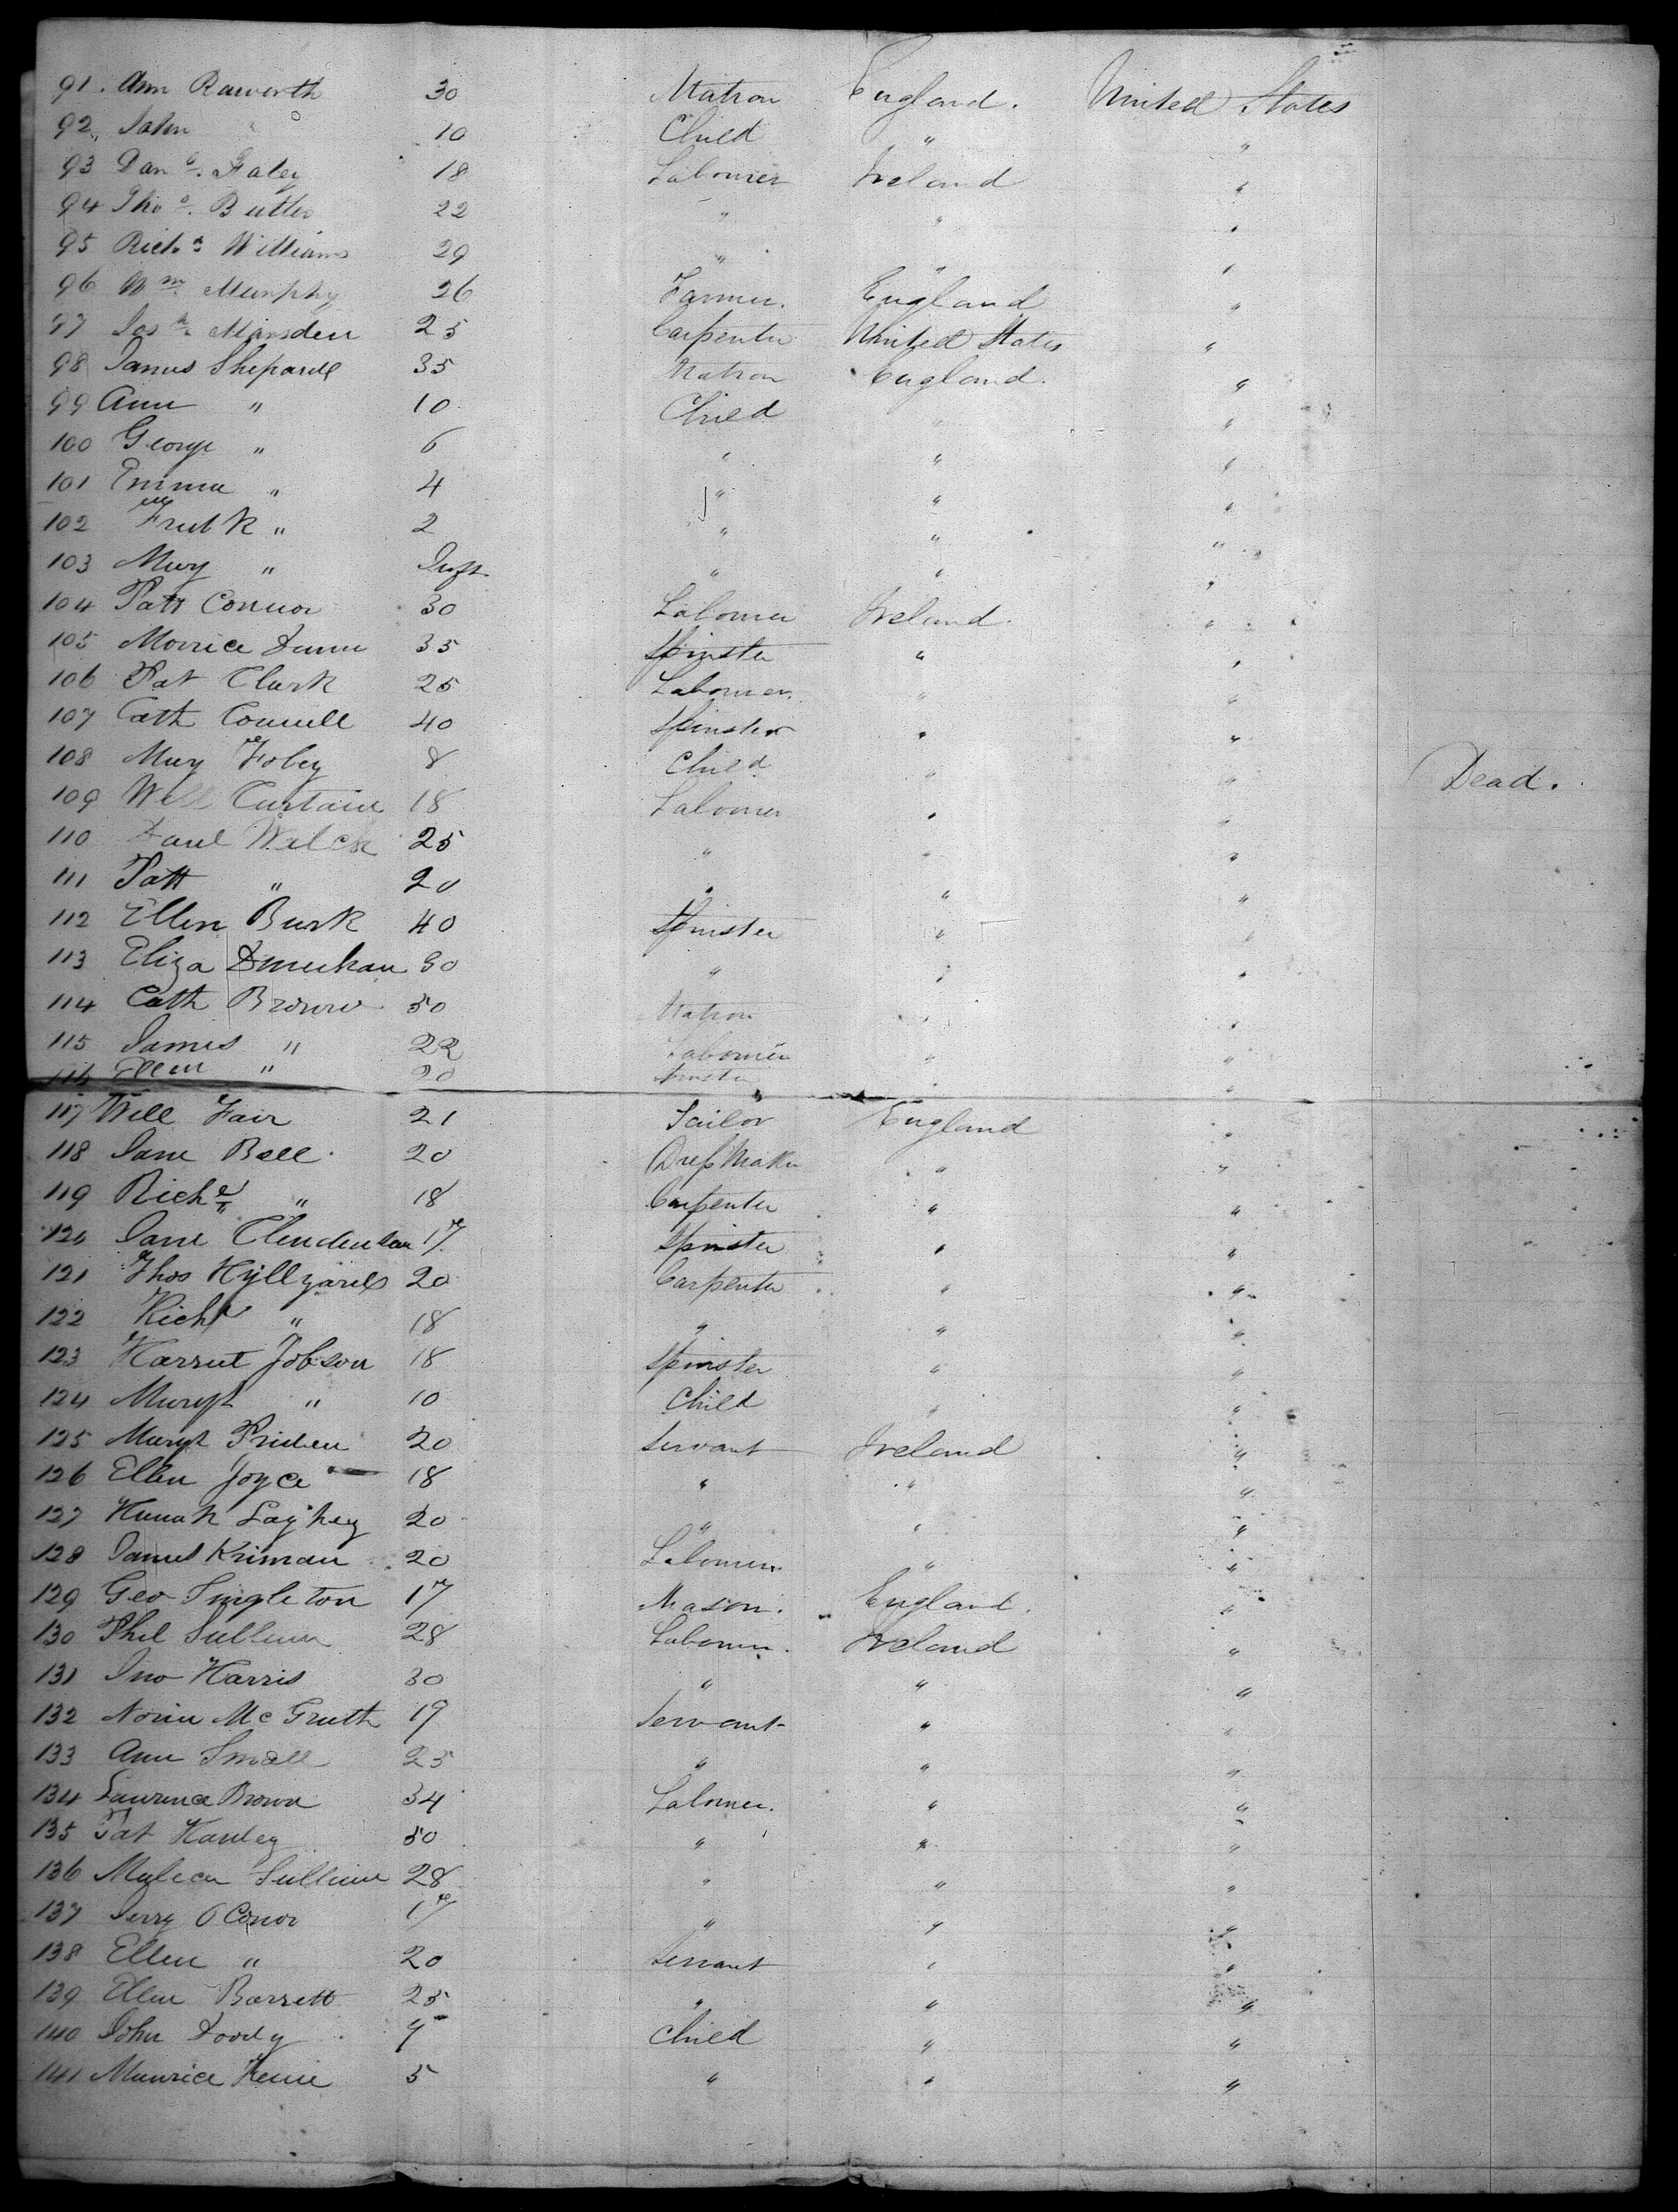 91. Ann Raworth 30 Matron England. United States
92. John " 10 Child " "
93 Danl. Haley 18 Labourer Ireland "
94 Thos. Butler 22 " " "
95 Richd Williams 29 " " "
96 Wm. Murphy 26 Farmer. England "
97 Josh. Marsden 25 Carpenter United States "
98 James Shepard 35 Matron England. "
99 Ann " 10 Child " "
100 George " 6 " " "
101 Emma " 4 " " "
102 Fredk " 2 " " "
103 Mary " Inft. " " "
104 Patt Connor 30 Labourer Ireland. "
105 Morrice Dunn 35 Spinster " "
106 Pat Clark 25 Labourer. " "
107 Cath Connell 40 Spinster " "
108 Mary Foley 8 Child " " Dead.
109 Will Curtain 18 Labourer " "
110 Danl Welch 25 " " "
111 Patt " 20 " " "
112 Ellen Burk 40 Spinster " "
113 Eliza 30 " " "
114 Cath Brown 50 Matron " "
115 James " 22 Labourer " "
116 Ellen " 20 Spinster " "
117 Will Fair 21 Tailor England "
118 Jane Bell 20 Dress Maker " "
119 Richd " 18 Carpenter " "
120 Jane Clendenson 17 Spinster " "
121 Thos Hyllyards 20 Carpenter " "
122 Richd " 18 " " "
123 Harriet Jobson 18 Spinster " "
124 Margt " 10 Child " "
125 Margt 20 Servant Ireland "
126 Ellen Joyce 18 " " "
127 Hanah Laghey 20 " " "
128 James Kriman 20 Labourer. " "
129 Geo Singleton 17 Mason. England. "
130 Phil Sullivan 28 Labourer. Ireland "
131 Jno Harris 30 " " "
132 Norin McGrath 19 Servant " "
133 Ann Small 25 " " "
134 Laurence Brown 34 Labourer. " "
135 Pat Hanley 50 " " "
136 Sullivan 28 " " "
137 Jerry O Conor 17 " " "
138 Ellen " 20 Servant " "
139 Ellen Barrett 25 " " "
140 John Doody 7 Child " "
141 Maurice 5 " " "